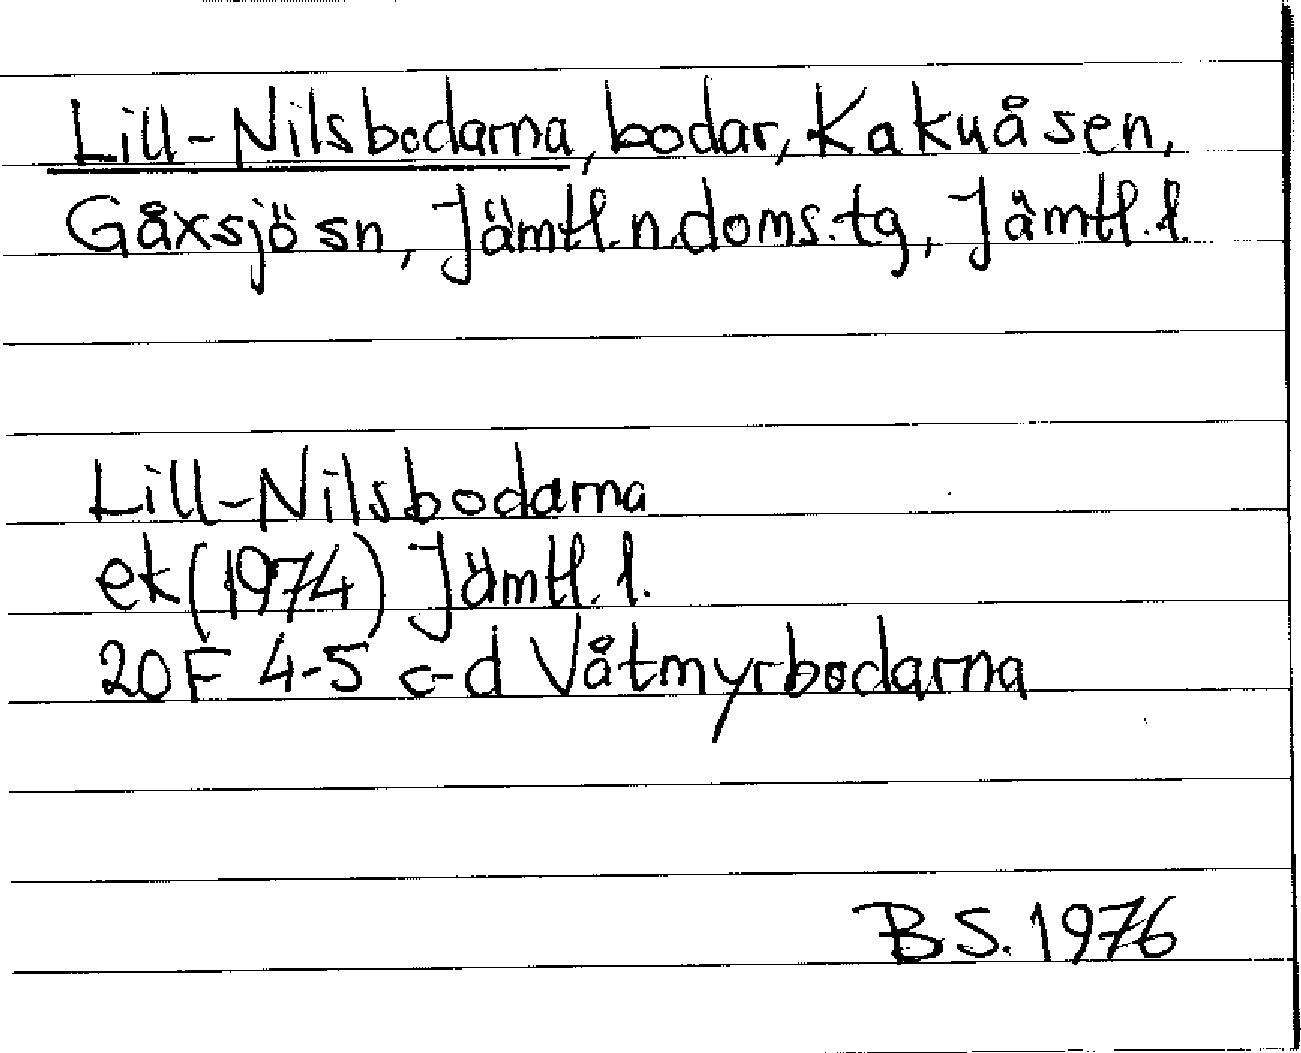 Lill-Nilsbodarna, bodar, Kakuåsen,
Gåxsjö sn, Jämtl.n.doms.tg, Jämtl.l.
Lill-Nilsbodarna
ek(1974) Jämtl.l.
20F 4-5 c-d Våtmyrbodarna
BS. 1976